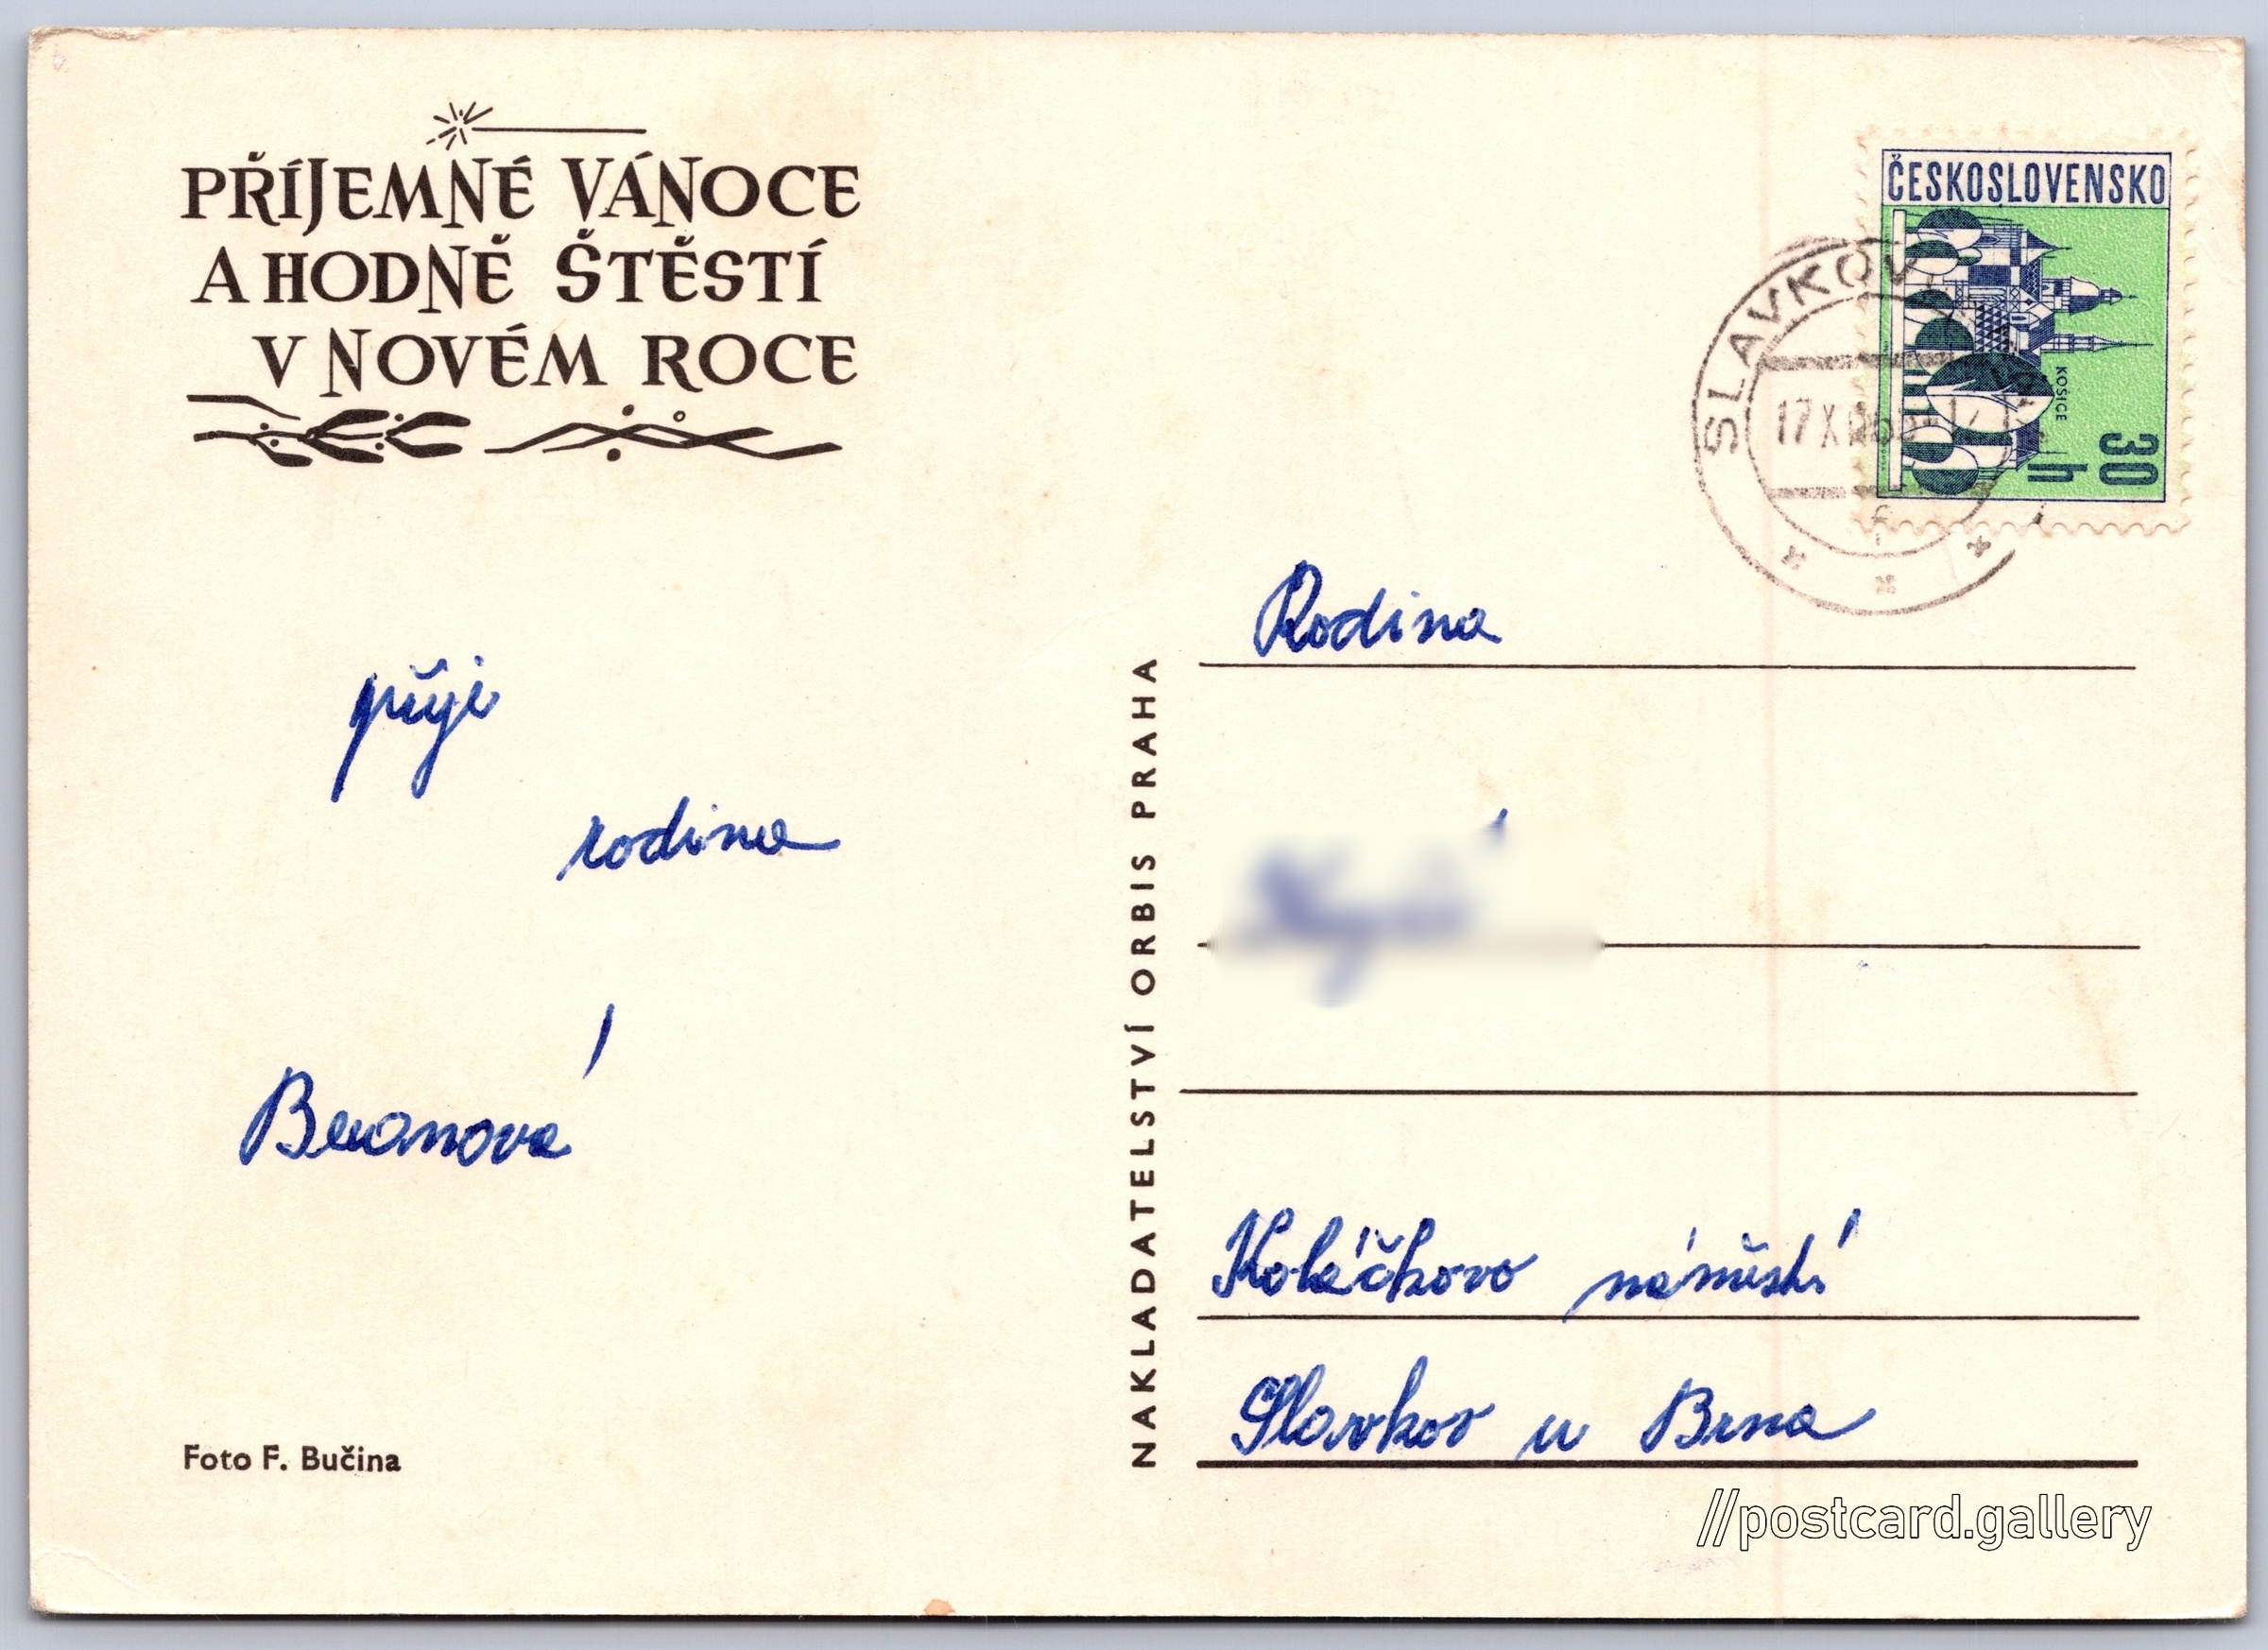 PŘÍJEMNÉ VÁNOCE
A HODNĚ ŠTĚSTÍ
V NOVÉM ROCE
přeje
rodina
Beranová
Foto F. Bučina
NAKLADATELSTVÍ ORBIS PRAHA
ČESKOSLOVENSKO
KOŠICE
30
h
SLAVKOV
17.X
Rodina
Koláčkovo náměstí
Slavkov u Brna
//postcard.gallery